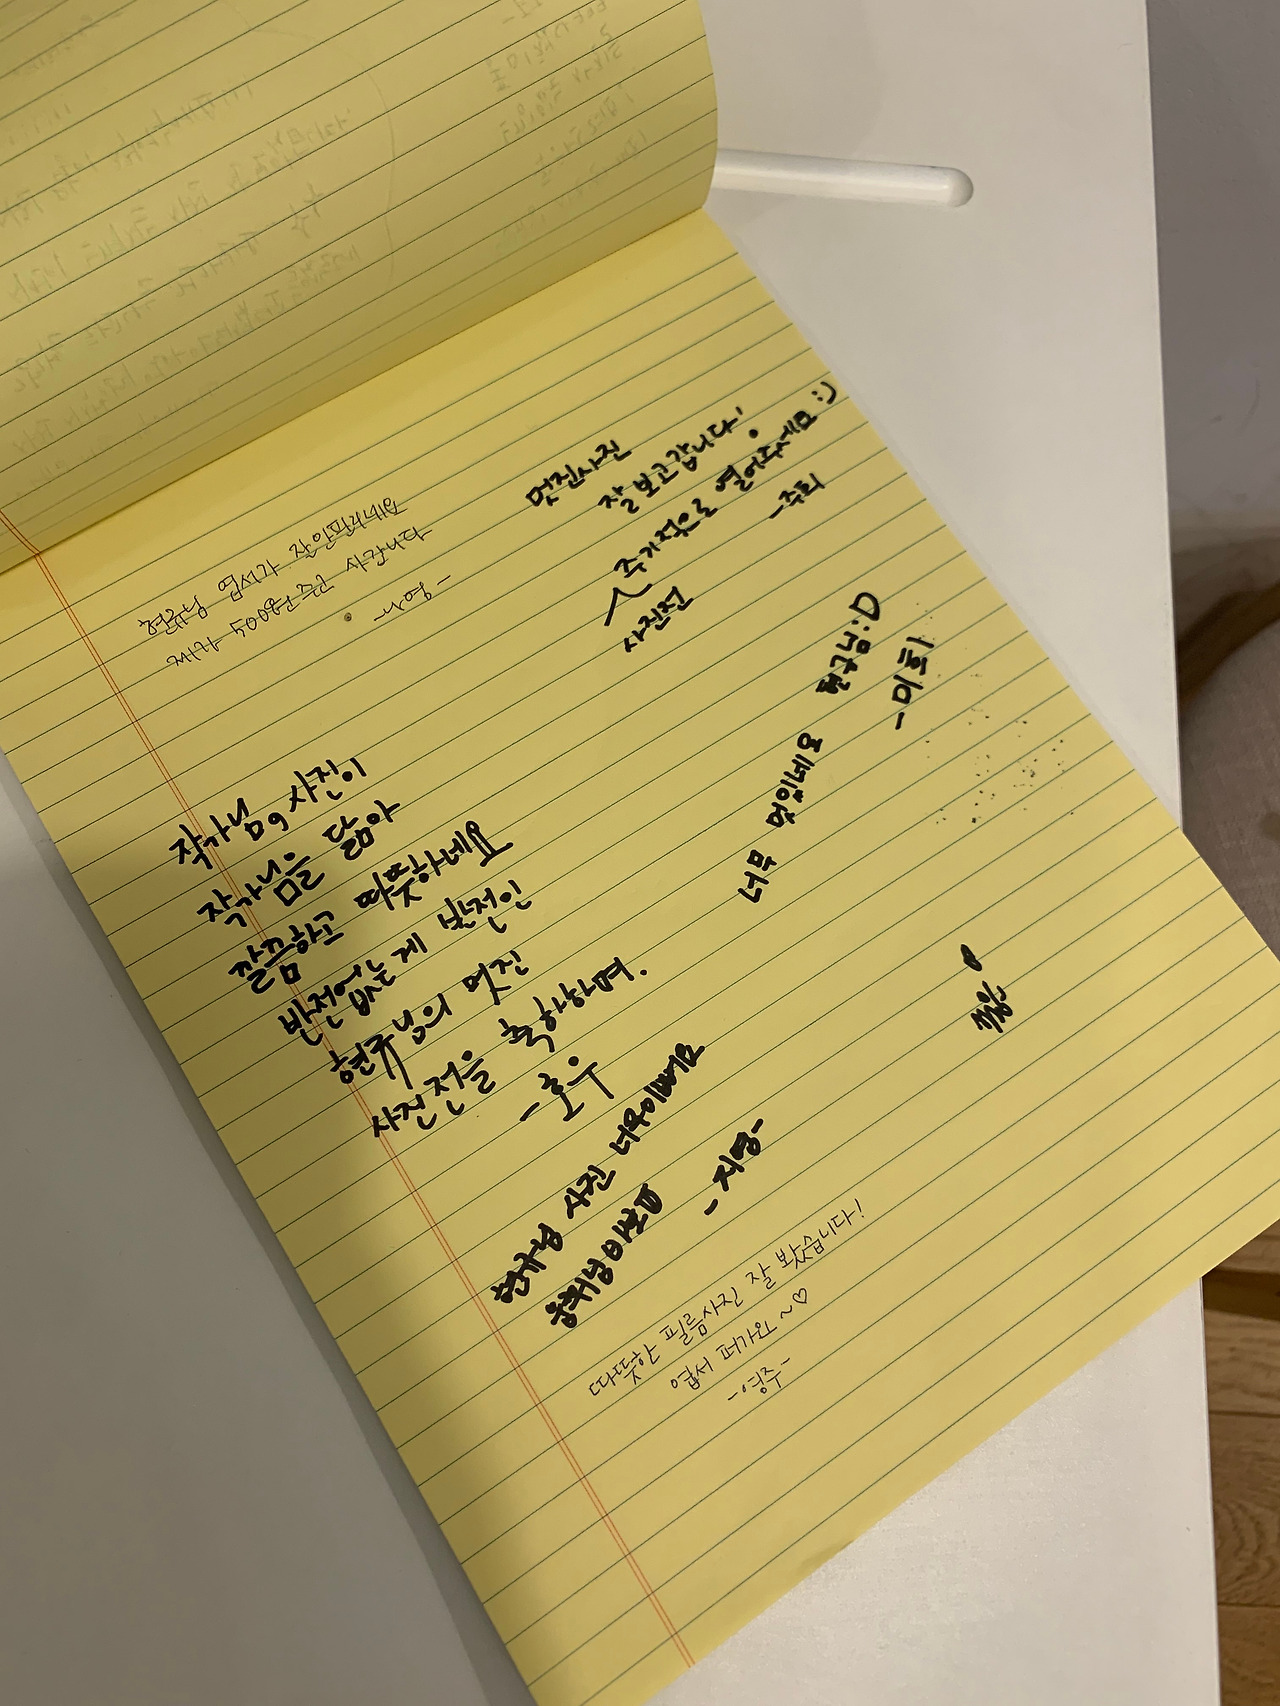 멋진사진
잘 보고갑니다!
주기적으로 열어주세요 :)
사진전
-주희
현규님 엽서가 잘안팔리네요
제가 5000원 주고 사갑니다
-나영-
너무 멋있네요 현규님:D
-미희
작가님의 사진이
작가님을 닮아
깔끔하고 따뜻하네요
반전없는게 반전인
현규님의 멋진
사진전을 축하하며.
-호우
현규님 사진 너무이뻐요
-지영-
따뜻한 필름사진 잘 봤습니다!
엽서 퍼가요~♡
-영주-